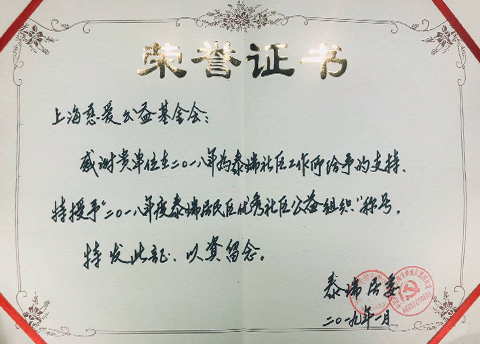 荣誉证书
上海慈爱公益基金会：
感谢贵单位在二〇一八年为泰瑞社区工作所给予的支持、
特授予“二〇一八年度泰瑞居民区优秀社区公益组织”称号。
特发此证、以资留念。
泰瑞居委
二〇一九年一月